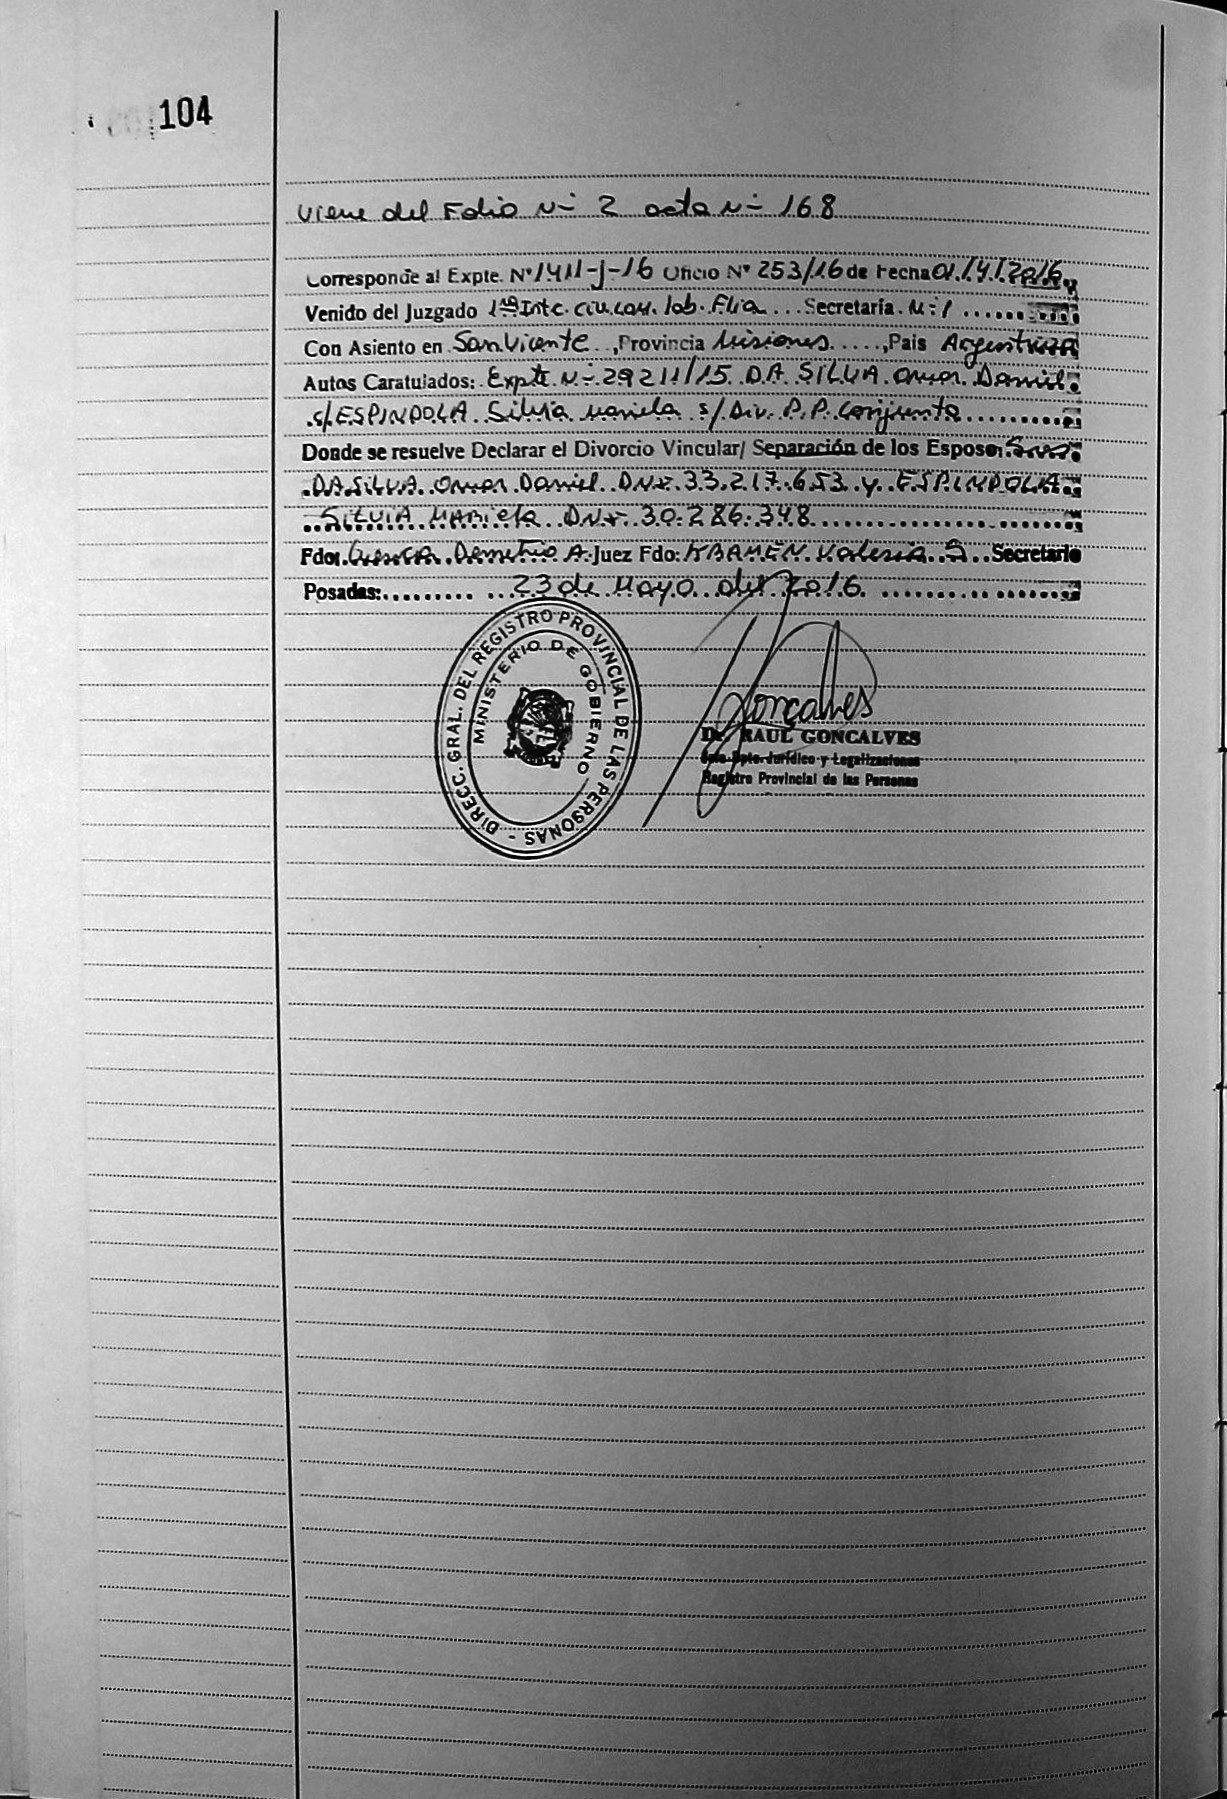 104
viene del Folio N- 2 acta N- 168
Corresponde al Expte. Nº 1411-J-16 Oficio Nº 253/16 de Fecha 01/4/2016
Venido del Juzgado 1ra Inst. civ. com. lab. Flia ... Secretaría. N-1 ......
Con Asiento en San Vicente ..,Provincia Misiones.....,Pais Argentina
Autos Caratulados: Expte. N-.29211/15. DA. SILVA. Omar. Daniel
c/ ESPINDOLA Silvia Mariela s/ Div. P.P. Conjunta .........
Donde se resuelve Declarar el Divorcio Vincular/ Separación de los Esposos
DA SILVA. Omar. Daniel. DNI. 33.217.653. y. ESPINDOLA
SILVIA MARIELA DNI. 30.286.348
Fdo: Demetrio A. Juez Fdo: Valeria Secretario
Posadas:......... ...23 de Mayo. del 2016. ..................
DIRECC. GRAL. DEL REGISTRO PROVINCIAL DE LAS PERSONAS -
MINISTERIO DE GOBIERNO
Gonçalves
Dr. RAUL GONCALVES
Dpto. Jurídico y Legalizaciones
Registro Provincial de las Personas